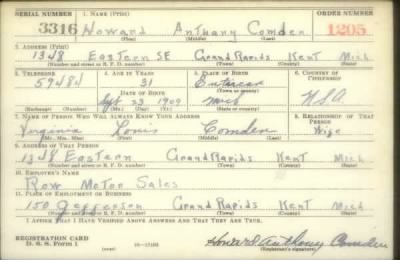 SERIAL NUMBER 1. NAME (Print) ORDER NUMBER
3316 Howard Anthony Comden 1205
(First) (Middle) (Last)
2. ADDRESS (Print)
1348 Eastern SE Grand Rapids Kent Mich
(Number and street or R. F. D. number) (Town) (County) (State)
3. TELEPHONE 4. AGE IN YEARS 5. PLACE OF BIRTH 6. COUNTRY OF CITIZENSHIP
59484 31
DATE OF BIRTH (Town or county)
Sept 23 1909 Mich U.S.A.
(Exchange) (Number) (Mo.) (Day) (Yr.) (State or country)
7. NAME OF PERSON WHO WILL ALWAYS KNOW YOUR ADDRESS 8. RELATIONSHIP OF THAT PERSON
Virginia Louis Comden Wife
(Mr., Mrs., Miss) (First) (Middle) (Last)
9. ADDRESS OF THAT PERSON
1348 Eastern Grand Rapids Kent Mich
(Number and street or R. F. D. number) (Town) (County) (State)
10. EMPLOYER'S NAME
Row Motor Sales
11. PLACE OF EMPLOYMENT OR BUSINESS
150 Jefferson Grand Rapids Kent Mich
(Number and street or R. F. D. number) (Town) (County) (State)
I AFFIRM THAT I HAVE VERIFIED ABOVE ANSWERS AND THAT THEY ARE TRUE.
REGISTRATION CARD
D. S. S. Form 1 (over) 16-17105 Howard Anthony Comden
(Registrant's signature)